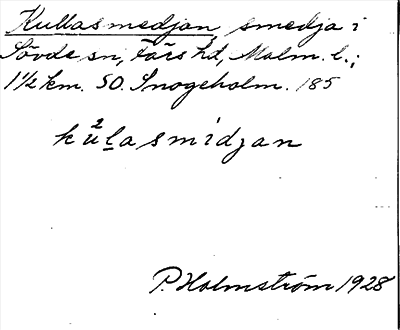 Kullasmedjan smedja i
Sövde sn, Färs hd, Malm. l.;
1 1/2 km. SO. Snogeholm. 185
kü²lasmidjan
P. Holmström 1928